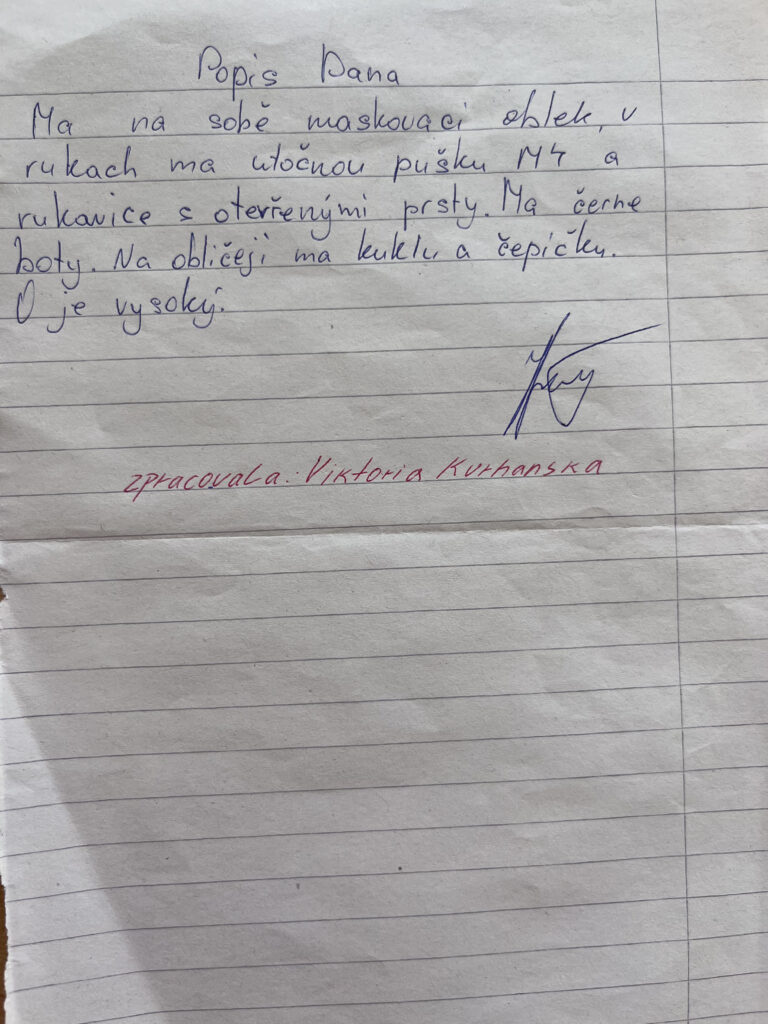 Popis Dana
Ma na sobě maskovaci oblek, v
rukach ma utočnou pušku M4 a
rukavice s oteřřenými prsty. Ma černe
boty. Na obličeji ma kuklu a čepičku.
O je vysoký.
zpracovala: Viktoria Kurhanska